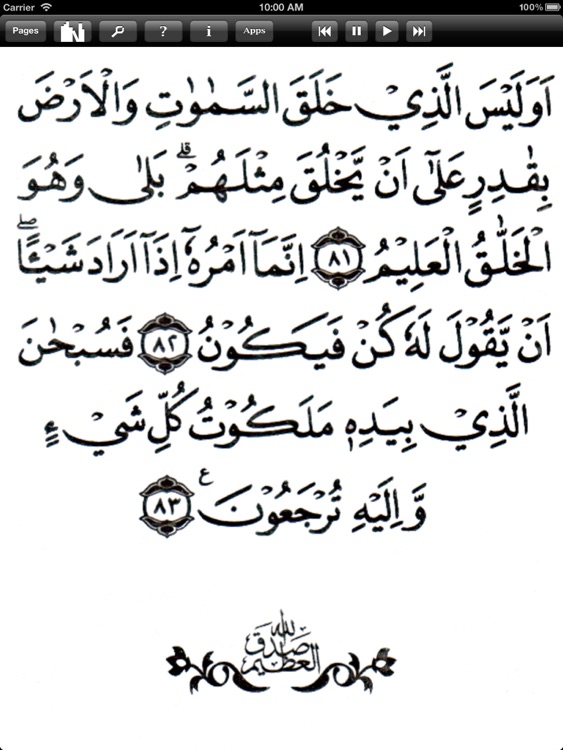 Carrier 10:00 AM 100%
Pages ? i Apps
اَوَلَيْسَ الَّذِيْ خَلَقَ السَّمٰوٰتِ وَالْاَرْضَ
بِقٰدِرٍ عَلٰٓى اَنْ يَّخْلُقَ مِثْلَهُمْ ۗ بَلٰى وَهُوَ
الْخَلّٰقُ الْعَلِيْمُ ﴿٨١﴾ اِنَّمَآ اَمْرُهٗٓ اِذَآ اَرَادَ شَيْـًٔا ۖ
اَنْ يَّقُوْلَ لَهٗ كُنْ فَيَكُوْنُ ﴿٨٢﴾ فَسُبْحٰنَ
الَّذِيْ بِيَدِهٖ مَلَكُوْتُ كُلِّ شَيْءٍ
وَّاِلَيْهِ تُرْجَعُوْنَ ﴿٨٣﴾ ع
صدق الله العظيم